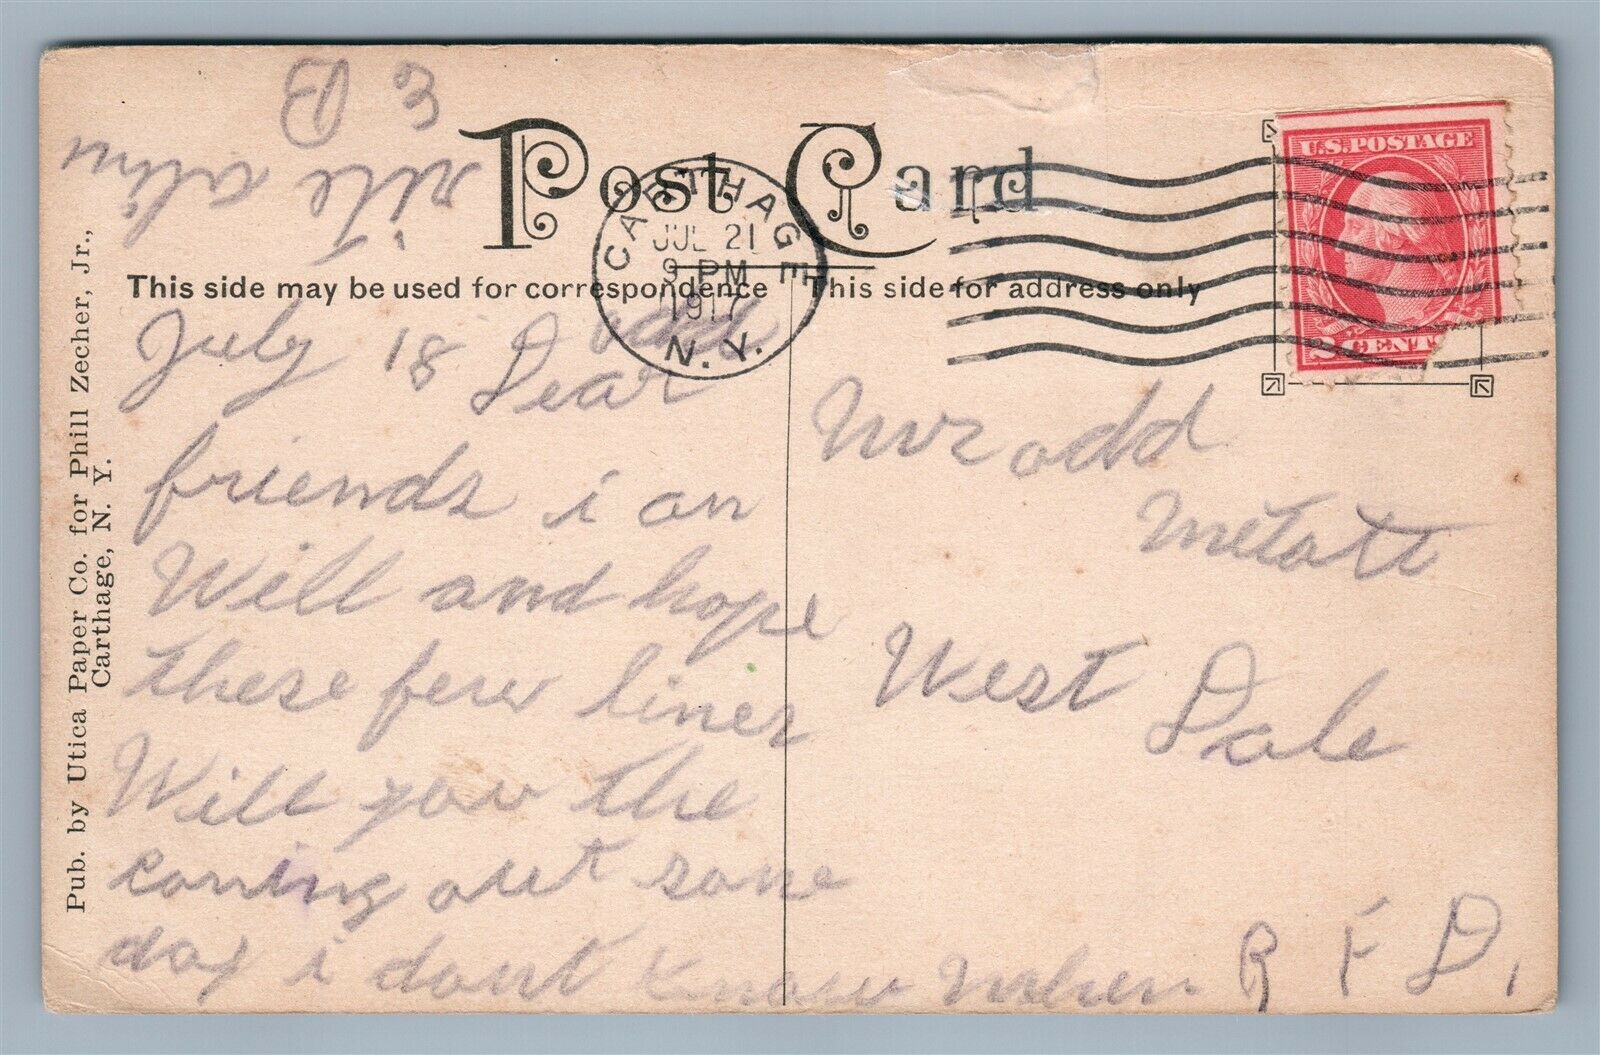 Post Card
CARTHAGE
JUL 21
9 PM
1917
N. Y.
U.S. POSTAGE
2 CENTS
This side may be used for correspondence
This side for address only
Pub. by Utica Paper Co. for Phill Zecher, Jr.,
Carthage, N. Y.
July 18 Dear
friends i an
Will and hope
these few lines
Will you the
coming out some
day i dont know when
E B
Mr odd
West Dale
R F D,